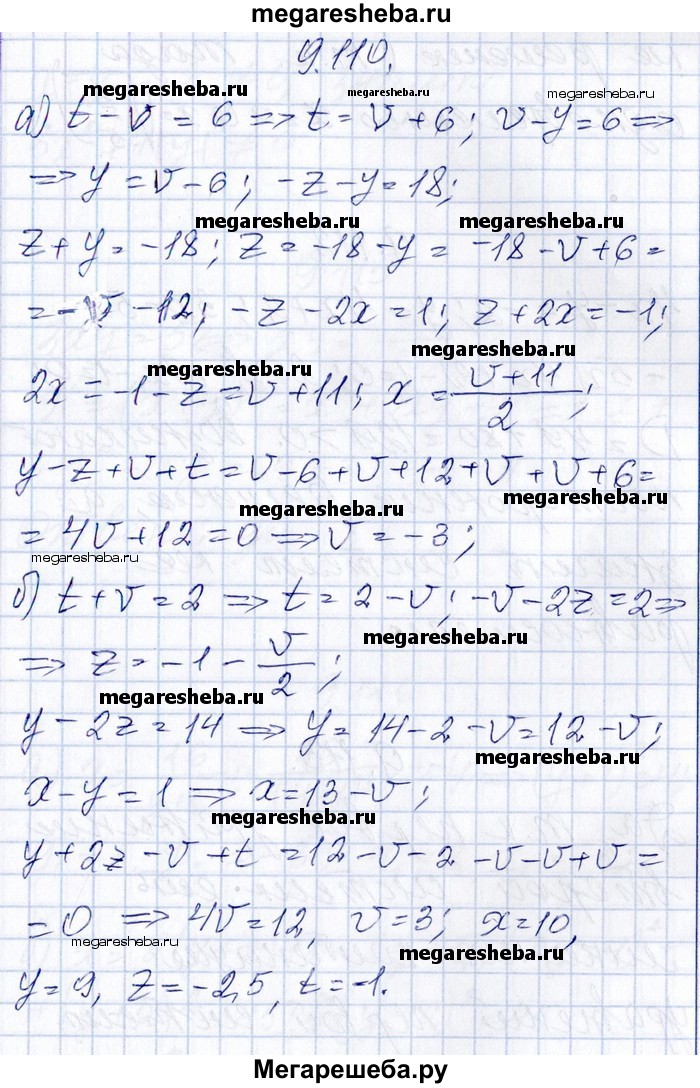 megaresheba.ru
9.110.
megaresheba.ru megaresheba.ru
а) t - v = 6 => t = v + 6; v - y = 6 =>
=> y = v - 6; -z - y = 18;
megaresheba.ru megaresheba.ru
z + y = -18; z = -18 - y = -18 - v + 6 =
= -v - 12; -z - 2x = 1; z + 2x = -1;
megaresheba.ru
2x = -1 - z = v + 11; x = \frac{v + 11}{2};
y - z + v + t = v - 6 + v + 12 + v + v + 6 =
megaresheba.ru megaresheba.ru
= 4v + 12 = 0 => v = -3;
megaresheba.ru
б) t + v = 2 => t = 2 - v; -v - 2z = 2 =>
megaresheba.ru
=> z = -1 - \frac{v}{2};
megaresheba.ru
y - 2z = 14 => y = 14 - 2 - v = 12 - v;
megaresheba.ru
x - y = 1 => x = 13 - v;
megaresheba.ru
y + 2z - v + t = 12 - v - 2 - v - v + v =
= 0 => 4v = 12, v = 3; x = 10,
megaresheba.ru megaresheba.ru
y = 9, z = -2,5, t = -1.
Мегарешеба.ру